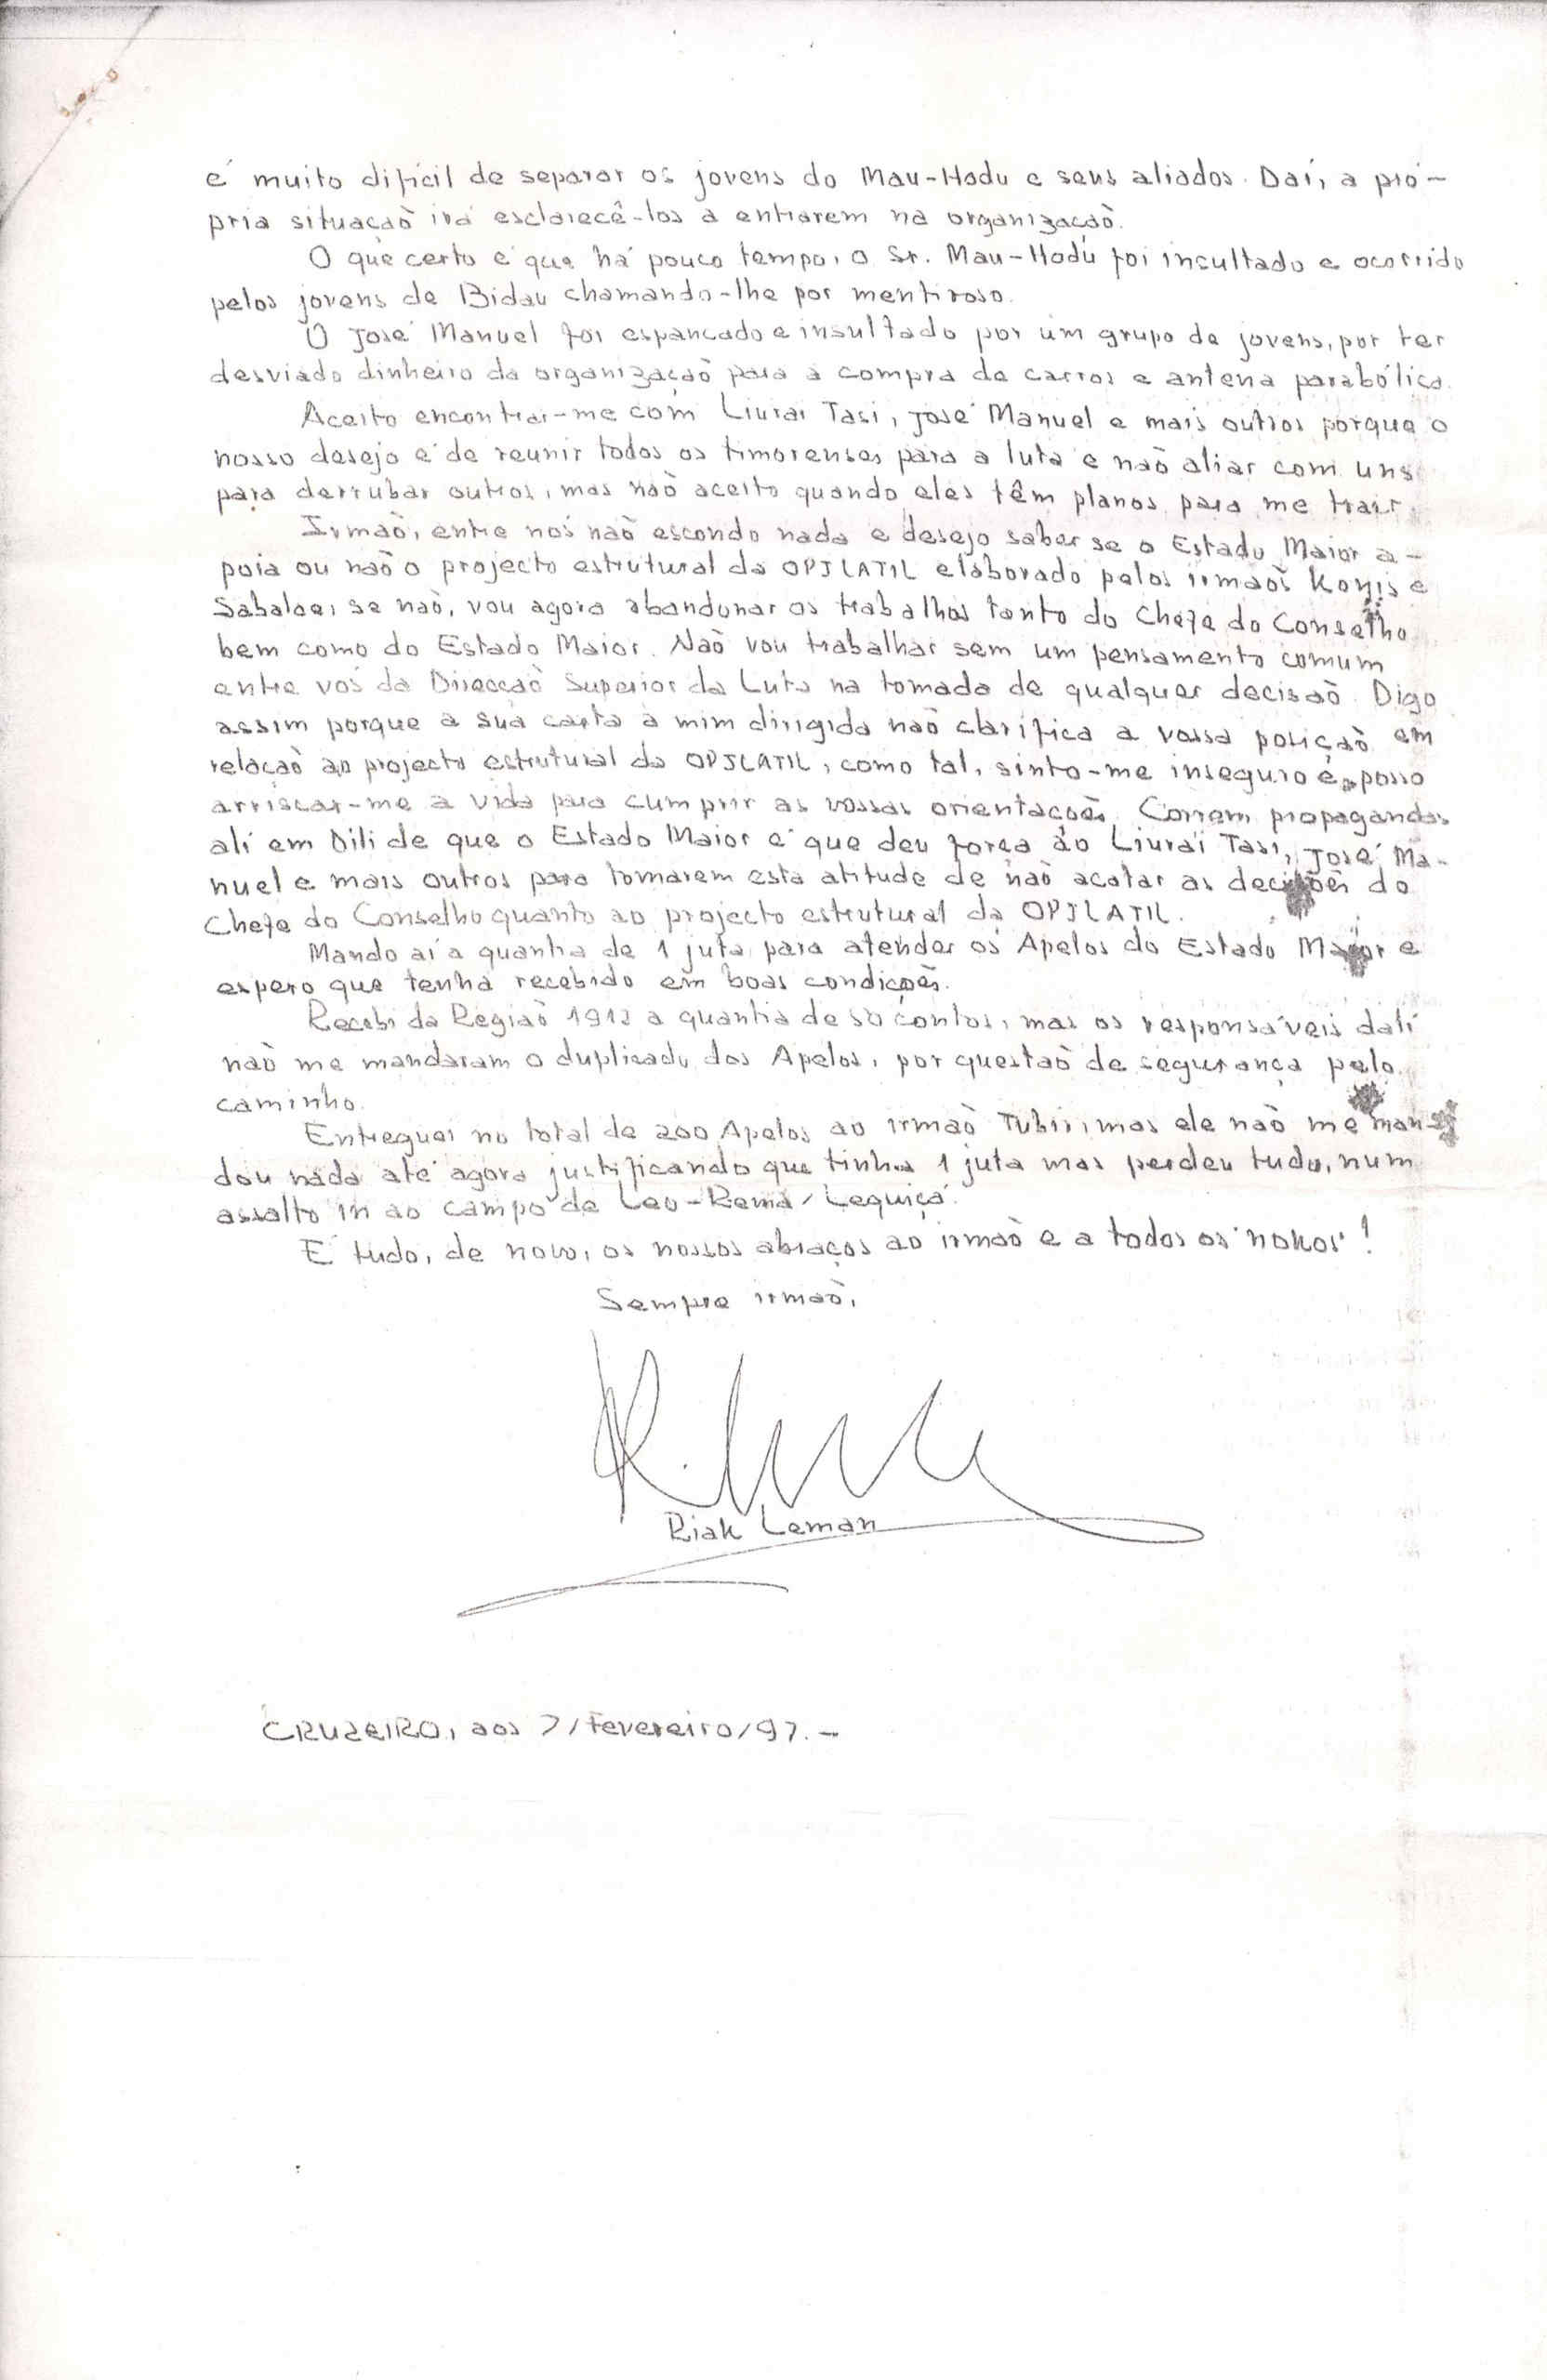 é muito difícil de separar os jovens do Mau-Hodu e seus aliados. Daí, a pró-
pria situação irá esclarecê-los a entrarem na organização.
O que certo é que há pouco tempo, o Sr. Mau-Hodu foi insultado e ocorrido
pelos jovens de Bidau chamando-lhe por mentiroso.
O José Manuel foi espancado e insultado por um grupo de jovens, por ter
desviado dinheiro da organização para a compra de carros e antena parabólica.
Aceito encontrar-me com Liurai Tasi, José Manuel e mais outros porque o
nosso desejo é de reunir todos os timorenses para a luta e não aliar com uns
para derrubar outros, mas não aceito quando eles têm planos para me trair.
Irmão, entre nós não escondo nada e desejo saber se o Estado Maior a-
poia ou não o projecto estrutural da OPJLATIL elaborado pelos irmãos Konis e
Sabalae, se não, vou agora abandonar os trabalhos tanto do Chefe do Conselho
bem como do Estado Maior. Não vou trabalhar sem um pensamento comum
entre vós da Direcção Superior da Luta na tomada de qualquer decisão. Digo
assim porque a sua carta a mim dirigida não clarifica a vossa posição em
relação ao projecto estrutural da OPJLATIL, como tal, sinto-me inseguro e posso
arriscar-me a vida para cumprir as vossas orientações. Correm propagandas
ali em Dili de que o Estado Maior é que deu força ao Liurai Tasi, José Ma-
nuel e mais outros para tomarem esta atitude de não acatar as decisões do
Chefe do Conselho quanto ao projecto estrutural da OPJLATIL.
Mando aí a quantia de 1 juta para atender os Apelos do Estado Maior e
espero que tenha recebido em boas condições.
Recebi da Região 1912 a quantia de 50 contos, mas os responsáveis dali
não me mandaram o duplicado dos Apelos, por questão de segurança pelo
caminho.
Entreguei no total de 200 Apelos ao irmão Tubir, mas ele não me man-
dou nada até agora justificando que tinha 1 juta mas perdeu tudo, num
assalto in ao campo de Leo-Rema/Lequiçá.
É tudo, de novo, os nossos abraços ao irmão e a todos os "nokos"!
Sempre irmão,
Riak Leman
CRUZEIRO, aos 7/Fevereiro/97.-